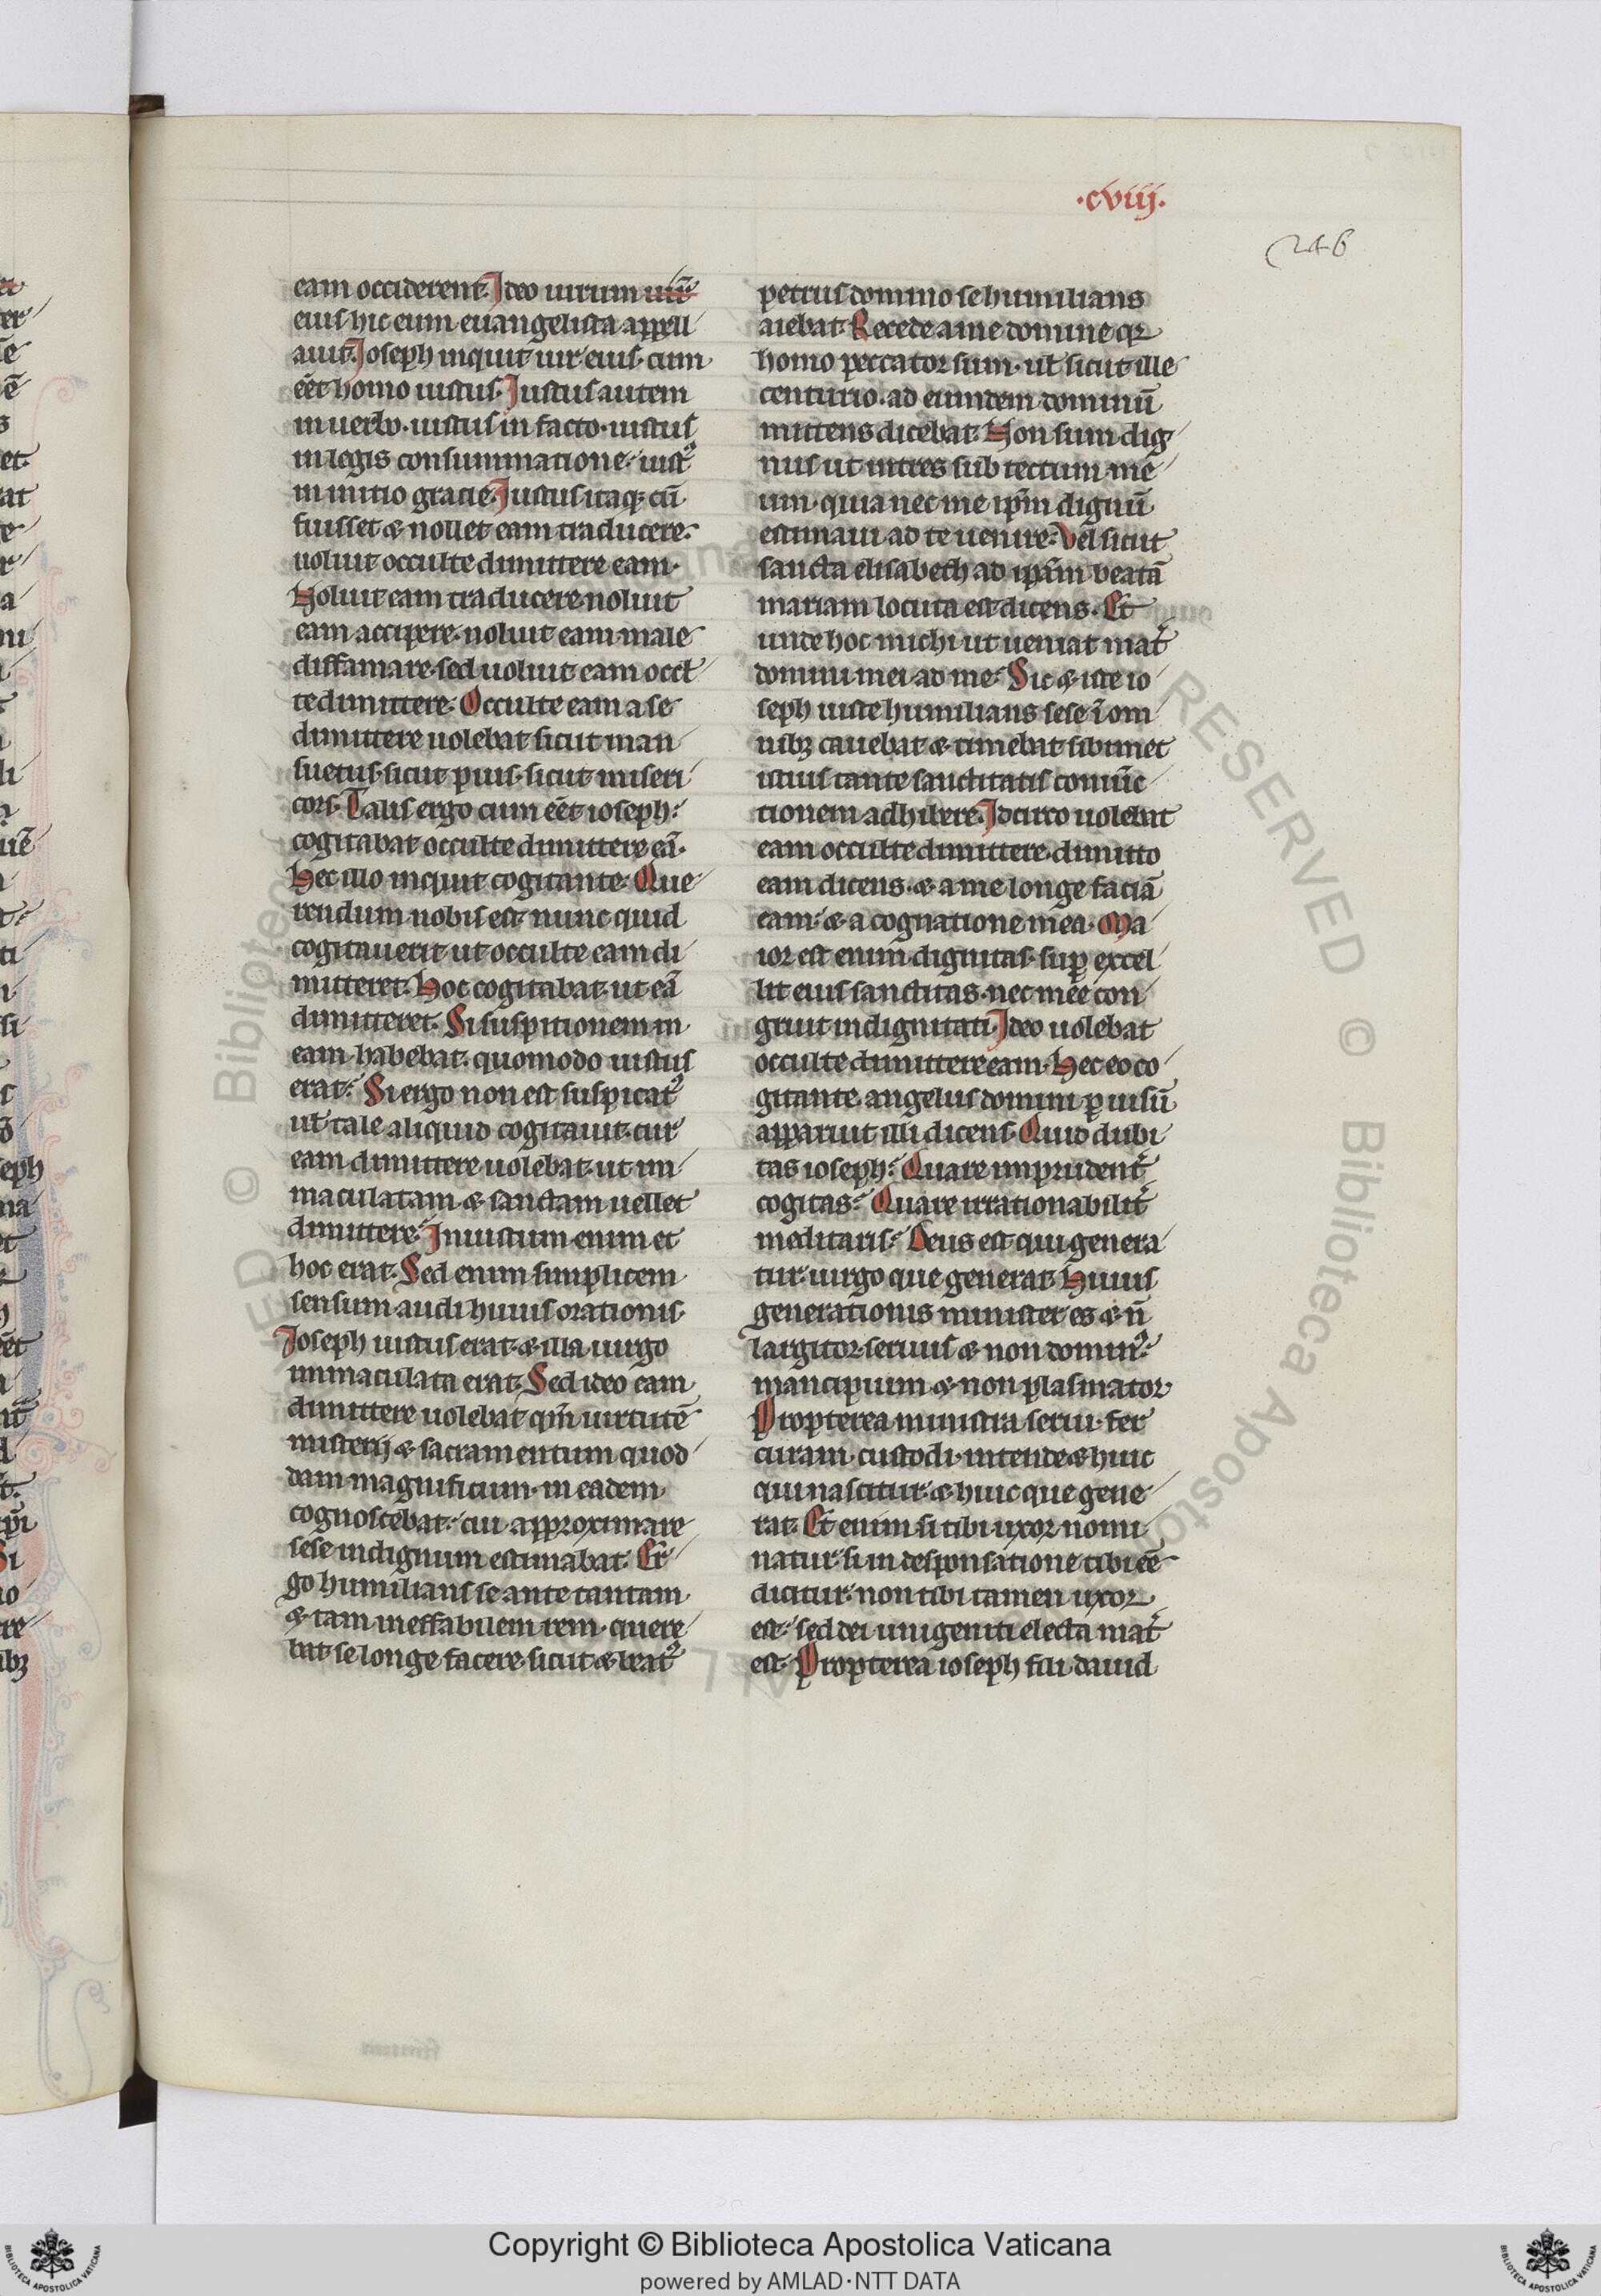 ·cviij·
246
eam occiderent. Ideo uirum uir̄
eius hic eum euangelista appell
auit. Ioseph inquit uir eius. cum
eēt homo iustus. Iustus autem
in uerbo. iustus in facto. iustus
in legis consummatione. iustꝰ
in initio gracie. Iustus itaqꝫ cū
fuisset & nollet eam traducere.
uoluit occulte dimittere eam.
Noluit eam traducere. noluit
eam accipere. noluit eam male
diffamare. sed uoluit eam occl̄
te dimittere. Occulte eam a se
dimittere uolebat sicut man
suetus. sicut pius. sicut miseri
cors. Talis ergo cum eēt ioseph.
cogitabat occulte dimittere eā.
Hec illo inquit cogitante. Que
rendum nobis est nunc quid
cogitauerit ut occulte eam di
mitteret. Hoc cogitabat. ut eā
dimitteret. Si suspitionem in
eam habebat. quomodo iustus
erat. Si ergo non est suspicatꝰ
ul̄ tale aliquid cogitauit. cur
eam dimittere uolebat. ut im
maculatam & sanctam uellet
dimittere. Iniustum enim et
hoc erat. Sed enim simplicem
sensum audi huius orationis.
Ioseph iustus erat. & illa uirgo
immaculata erat. Sed ideo eam
dimittere uolebat qm̄ uirtutē
misterij & sacramentum quod
dam magnificum. in eadem
cognoscebat. cui approximare
sese indignum estimabat. Er
go humilians se ante tantam
& tam ineffabilem rem. quere
bat se longe facere. sicut & beatꝰ
petrus domino se humilians
aiebat. Recede a me domine qꝛ
homo peccator sum. ul̄ sicut ille
centurio. ad eundem dominū
mittens dicebat. Non sum dig
nus ut intres sub tectum me
um. quia nec me ip̄m dignū
estimaui ad te uenire. Vel sicut
sancta elisabeth ad ip̄am beatā
mariam locuta est dicens. Et
unde hoc michi ut ueniat mat̄
domini mei ad me. Sic & iste io
seph iuste humilians sese ī om
nibꝫ cauebat & timebat sibimet
istius tante sanctitatis comūic
tionem adhibere. Idcirco uolebat
eam occulte dimittere. dimitto
eam dicens. & a me longe faciā
eam. & a cognatione mea. Ma
ior est enim dignitas. suꝑ excel
lit eius sanctitas. nec mee con
gruit indignitati. Ideo uolebat
occulte dimittere eam. Hec eo co
gitante. angelus domini ꝑ uisū
apparuit illi dicens. Quid dubi
tas ioseph. Quare imprudent̄
cogitas. Quare irrationabilit̄
meditaris. Deus est qui genera
tur. uirgo que generat. Huius
generationis minister es & n̄
largitor. seruus & non dominꝰ.
mancipium & non plasmator
Propterea ministra serui. fer
curam. custodi. intende & huic
qui nascitur. & huic que gene
rat. Et enim si tibi uxor nomi
natur. si in desponsatione tibi eē
dicitur. non tibi tamen uxor
est. sed dei unigeniti electa mat̄
est. Propterea ioseph fili dauid
Copyright © Biblioteca Apostolica Vaticana
powered by AMLAD·NTT DATA